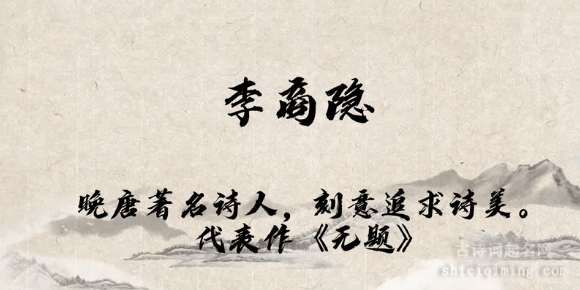 李商隐
晚唐著名诗人，刻意追求诗美。
代表作《无题》
古诗词起名网
shiciqiming.com